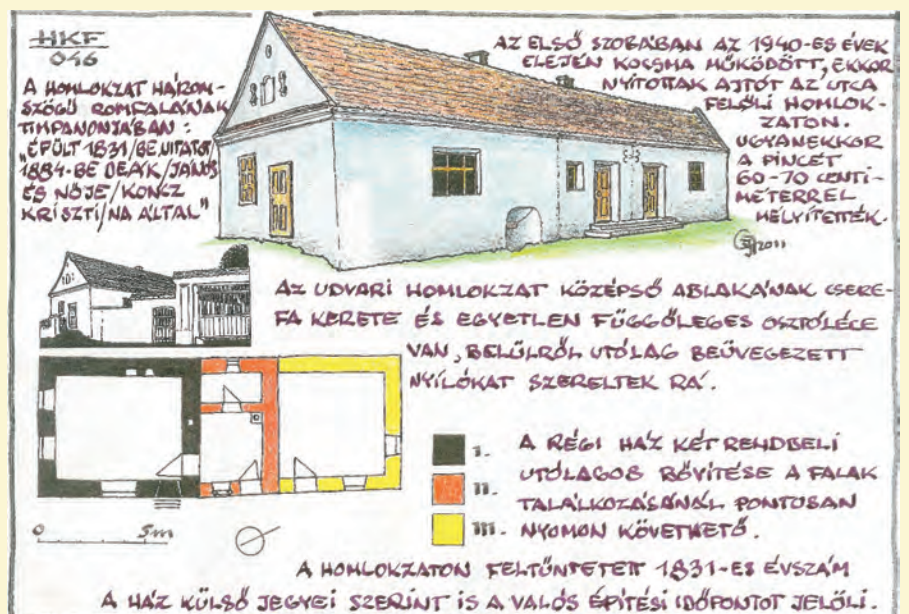 HKF
046
A HOMLOKZAT HÁROM-
SZÖGŰ ROMFALÁNAK
TIMPANONJÁBAN:
„ÉPÜLT 1831/BEUJITATOT
1884-BE DEÁK/JÁNOS
ÉS NŐJE/KONCZ
KRISZTI/NA ÁLTAL"
AZ ELSŐ SZOBÁBAN AZ 1940-ES ÉVEK
ELEJÉN KOCSMA MŰKÖDÖTT, EKKOR
NYITOTTAK AJTÓT AZ UTCA
FELŐLI HOMLOK-
ZATON.
UGYANEKKOR
A PINCÉT
60-70 CENTI-
MÉTERREL
MÉLYÍTETTÉK.
2011
AZ UDVARI HOMLOKZAT KÖZÉPSŐ ABLAKÁNAK CSERE-
FA KERETE ÉS EGYETLEN FÜGGŐLEGES OSZTÓLÉCE
VAN, BELÜLRŐL UTÓLAG BEÜVEGEZETT
NYÍLÓKAT SZERELTEK RÁ.
I. A RÉGI HÁZ KÉT RENDBELI
II. UTÓLAGOS BŐVÍTÉSE A FALAK
TALÁLKOZÁSÁNÁL PONTOSAN
III. NYOMON KÖVETHETŐ.
0 5m
A HOMLOKZATON FELTÜNTETETT 1831-ES ÉVSZÁM
A HÁZ KÜLSŐ JEGYEI SZERINT IS A VALÓS ÉPÍTÉSI IDŐPONTOT JELÖLI.